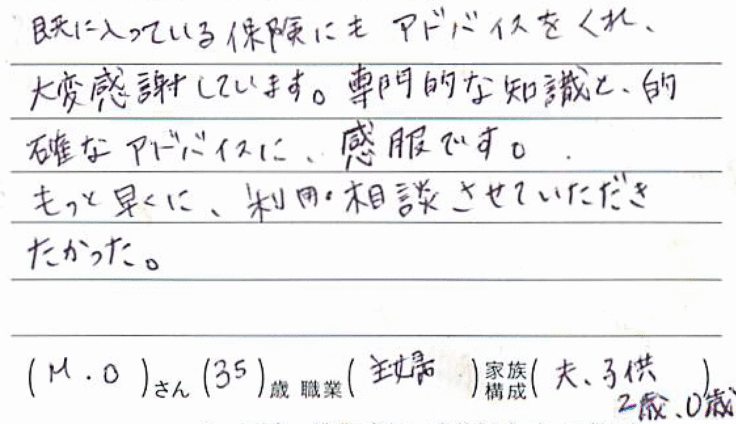 既に入っている保険にも アドバイスをくれ、
大変感謝しています。専門的な知識と、的
確なアドバイスに、感服です。
もっと早くに、利用・相談させていただき
たかった。
(M.O)さん (35)歳 職業(主婦)家族構成(夫、子供
2歳、0歳)